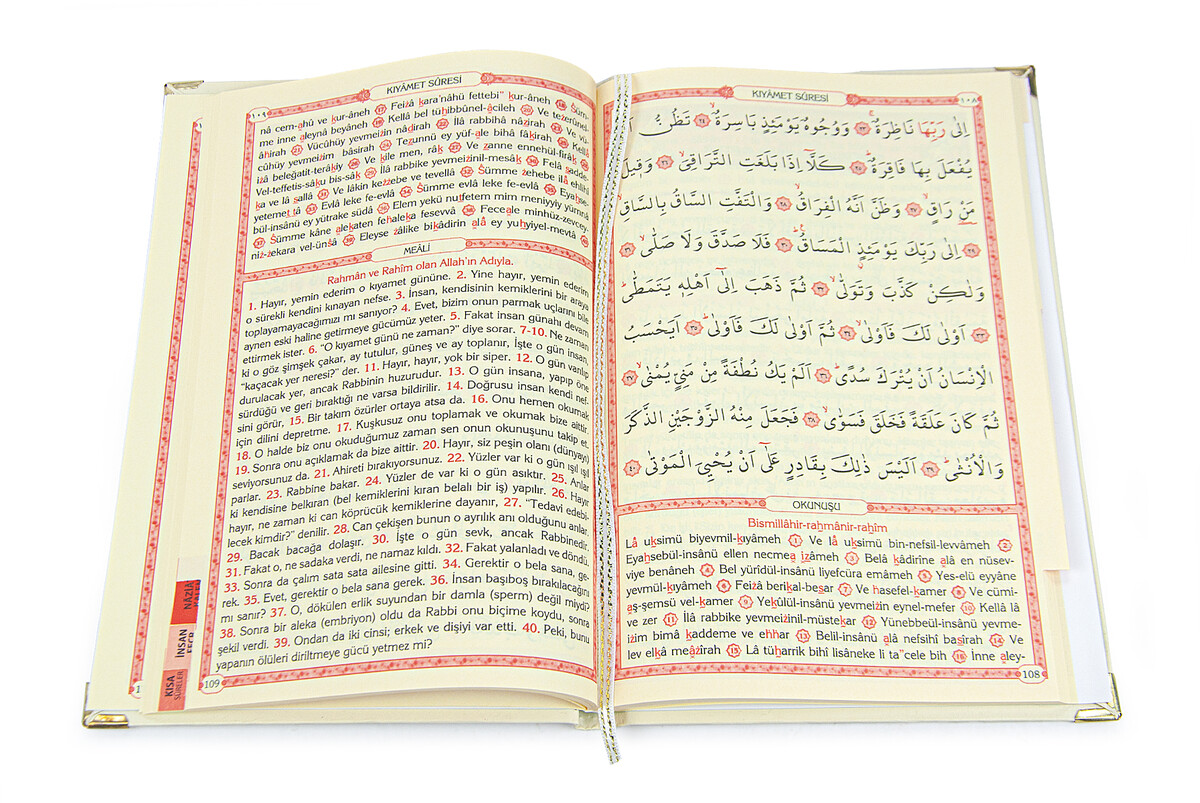 KIYÂMET SÛRESİ
١٠٨
اِلٰى رَبِّهَا نَاظِرَةٌۚ ﴿٢٣﴾ وَوُجُوهٌ يَوْمَئِذٍ بَاسِرَةٌۙ ﴿٢٤﴾ تَظُنُّ
يُفْعَلَ بِهَا فَاقِرَةٌۜ ﴿٢٥﴾ كَلَّٓا اِذَا بَلَغَتِ التَّرَاقِيَۙ ﴿٢٦﴾ وَق۪يلَ
مَنْ رَاقٍۙ ﴿٢٧﴾ وَظَنَّ اَنَّهُ الْفِرَاقُۙ ﴿٢٨﴾ وَالْتَفَّتِ السَّاقُ بِالسَّاقِۙ
﴿٢٩﴾ اِلٰى رَبِّكَ يَوْمَئِذٍ الْمَسَاقُۜ ﴿٣٠﴾ فَلَا صَدَّقَ وَلَا صَلّٰىۙ ﴿٣١﴾
وَلٰكِنْ كَذَّبَ وَتَوَلّٰىۙ ﴿٣٢﴾ ثُمَّ ذَهَبَ اِلٰٓى اَهْلِه۪ يَتَمَطّٰىۜ
﴿٣٣﴾ اَوْلٰى لَكَ فَاَوْلٰىۙ ﴿٣٤﴾ ثُمَّ اَوْلٰى لَكَ فَاَوْلٰىۜ ﴿٣٥﴾ اَيَحْسَبُ
الْاِنْسَانُ اَنْ يُتْرَكَ سُدًىۜ ﴿٣٦﴾ اَلَمْ يَكُ نُطْفَةً مِنْ مَنِيٍّ يُمْنٰىۙ ﴿٣٧﴾
ثُمَّ كَانَ عَلَقَةً فَخَلَقَ فَسَوّٰىۙ ﴿٣٨﴾ فَجَعَلَ مِنْهُ الزَّوْجَيْنِ الذَّكَرَ
وَالْاُنْثٰىۜ ﴿٣٩﴾ اَلَيْسَ ذٰلِكَ بِقَادِرٍ عَلٰٓى اَنْ يُحْيِيَ الْمَوْتٰى ﴿٤٠﴾
OKUNUŞU
Bismillâhir-rahmânir-rahîm
Lâ uksimü biyevmil-kıyâmeh 1 Ve lâ uksimü bin-nefsil-levvâmeh 2
Eyahsebül-insânü ellen necmea izâmeh 3 Belâ kâdirîne alâ en nüsev-
viye benâneh 4 Bel yürîdül-insânü liyefcüra emâmeh 5 Yes-elü eyyâne
yevmül-kıyâmeh 6 Feizâ berikal-besar 7 Ve hasefel-kamer 8 Ve cümi-
aş-şemsü vel-kamer 9 Yekûlül-insânü yevmeizin eynel-mefer 10 Kellâ lâ
ve zer 11 İlâ rabbike yevmeizinil-müstekar 12 Yünebbeül-insânü yevme-
izim bimâ kaddeme ve ehhar 13 Belil-insânü alâ nefsihî basîrah 14 Ve
lev elkâ meâzîrah 15 Lâ tüharrik bihî lisâneke li ta"cele bih 16 İnne aley-
108
KIYÂMET SÛRESİ
١٠٩
nâ cem-ahû ve kur-âneh 17 Feizâ kara'nâhü fettebi" kur-âneh 18 Süm-
me inne aleynâ beyâneh 19 Kellâ bel tühibbûnel-âcileh 20 Ve tezerûnel-
âhırah 21 Vücûhüy yevmeizin nâdirah 22 İlâ rabbihâ nâzirah 23 Ve vü-
cûhüy yevmeizim bâsirah 24 Tezunnü ey yüf-ale bihâ fâkirah 25 Kellâ
izâ beleğatit-terâkıy 26 Ve kîle men, râk 27 Ve zanne ennehül-firâk 28
Vel-teffetis-sâku bis-sâk 29 İlâ rabbike yevmeizinil-mesâk 30 Felâ sadde-
ka ve lâ sallâ 31 Ve lâkin kezzebe ve tevellâ 32 Sümme zehebe ilâ ehlihî
yetemettâ 33 Evlâ leke fe-evlâ 34 Sümme evlâ leke fe-evlâ 35 Eyahse-
bül-insânü ey yütrake südâ 36 Elem yekü nutfetem mim meniyyiy yümnâ
37 Sümme kâne alekaten fehaleka fesevvâ 38 Feceale minhüz-zevcey-
niz-zekara vel-ünsâ 39 Eleyse zâlike bikâdirin alâ ey yuhyiyel-mevtâ 40
MEÂLİ
Rahmân ve Rahîm olan Allah'ın Adıyla.
1. Hayır, yemin ederim o kıyamet gününe. 2. Yine hayır, yemin ederim
o sürekli kendini kınayan nefse. 3. İnsan, kendisinin kemiklerini bir araya
toplayamayacağımızı mı sanıyor? 4. Evet, bizim onun parmak uçlarını bile
aynen eski haline getirmeye gücümüz yeter. 5. Fakat insan günahı devam
ettirmek ister. 6. “O kıyamet günü ne zaman?” diye sorar. 7-10. Ne zaman
ki o göz şimşek çakar, ay tutulur, güneş ve ay toplanır, İşte o gün insan,
“kaçacak yer neresi?” der. 11. Hayır, hayır, yok bir siper. 12. O gün varılıp
durulacak yer, ancak Rabbinin huzurudur. 13. O gün insana, yapıp öne
sürdüğü ve geri bıraktığı ne varsa bildirilir. 14. Doğrusu insan kendi nef-
sini görür, 15. Bir takım özürler ortaya atsa da. 16. Onu hemen okumak
için dilini depretme. 17. Kuşkusuz onu toplamak ve okumak bize aittir.
18. O halde biz onu okuduğumuz zaman sen onun okunuşunu takip et.
19. Sonra onu açıklamak da bize aittir. 20. Hayır, siz peşin olanı (dünyayı)
seviyorsunuz da. 21. Ahireti bırakıyorsunuz. 22. Yüzler var ki o gün ışıl ışıl
parlar. 23. Rabbine bakar. 24. Yüzler de var ki o gün asıktır. 25. Anlar
ki kendisine belkıran (bel kemiklerini kıran belalı bir iş) yapılır. 26. Hayır
hayır, ne zaman ki can köprücük kemiklerine dayanır, 27. “Tedavi edebi-
lecek kimdir?” denilir. 28. Can çekişen bunun o ayrılık anı olduğunu anlar.
29. Bacak bacağa dolaşır. 30. İşte o gün sevk, ancak Rabbinedir.
31. Fakat o, ne sadaka verdi, ne namaz kıldı. 32. Fakat yalanladı ve döndü.
33. Sonra da çalım sata sata ailesine gitti. 34. Gerektir o bela sana, ge-
rek. 35. Evet, gerektir o bela sana gerek. 36. İnsan başıboş bırakılacağını
mı sanır? 37. O, dökülen erlik suyundan bir damla (sperm) değil miydi?
38. Sonra bir aleka (embriyon) oldu da Rabbi onu biçime koydu, sonra
şekil verdi. 39. Ondan da iki cinsi; erkek ve dişiyi var etti. 40. Peki, bunu
yapanın ölüleri diriltmeye gücü yetmez mi?
109
NÂZİÂ
İNSAN
KISA
SÛRELER